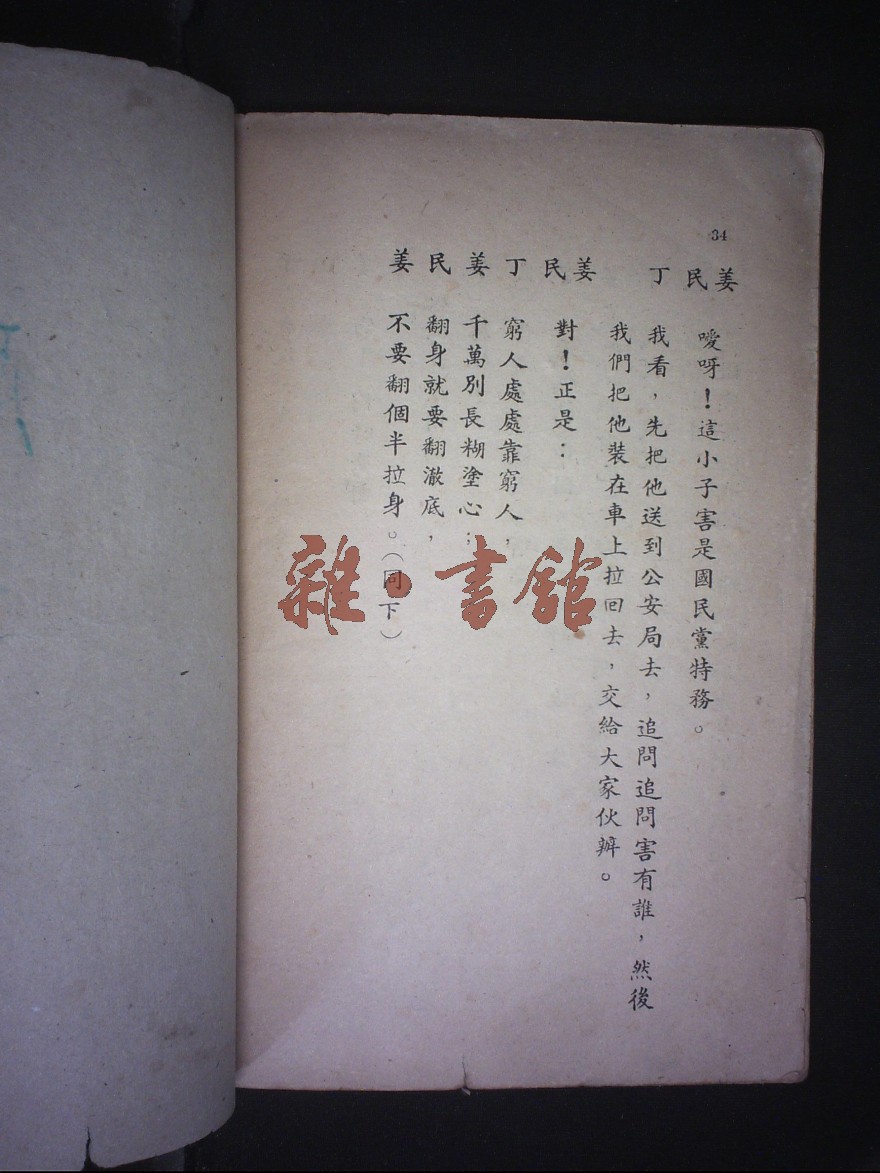 34
姜民　噯呀！這小子害是國民黨特務。
丁　我看，先把他送到公安局去，追問追問害有誰，然後
我們把他裝在車上拉回去，交給大家伙辦。
姜民　對！正是：
丁　窮人處處靠窮人，
姜　千萬別長糊塗心；
民　翻身就要翻澈底，
姜　不要翻個半拉身。（同下）
雜·書館